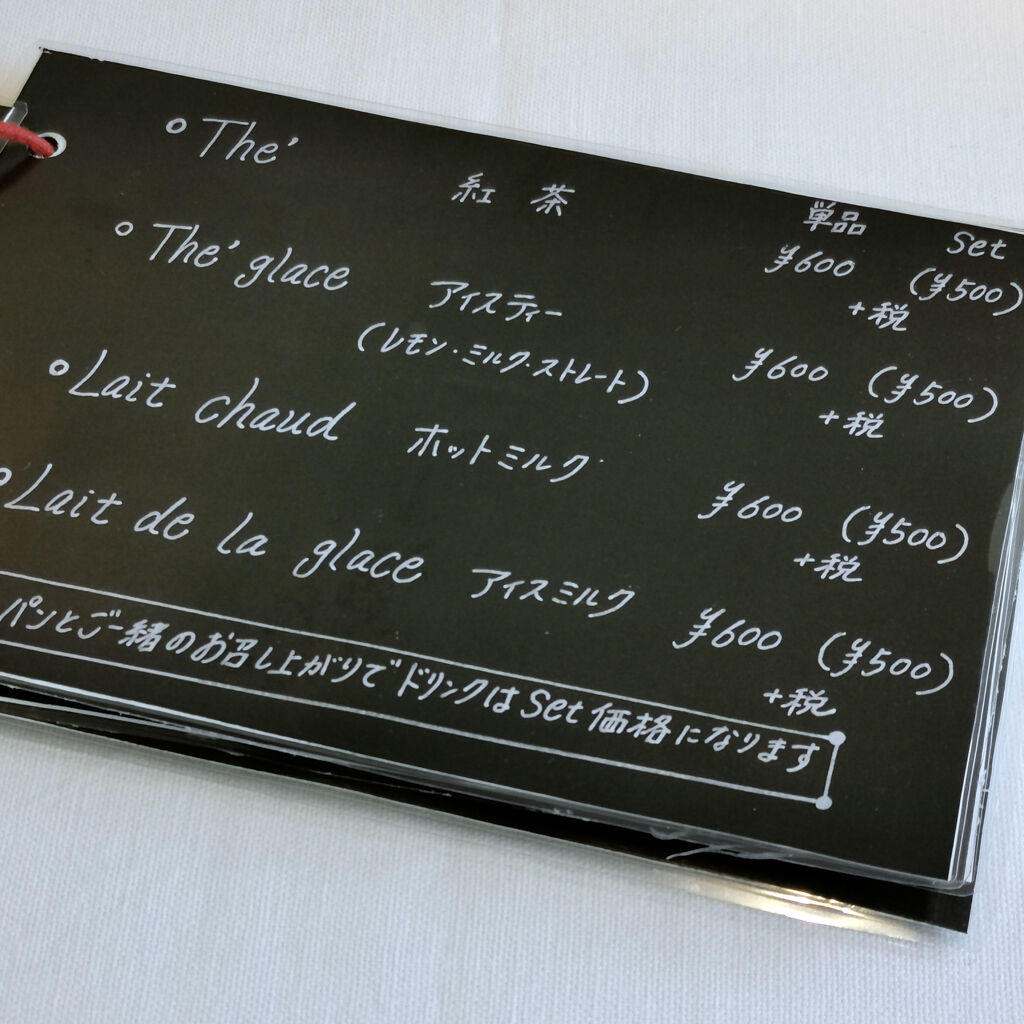 ○ The' 紅茶 単品 Set
¥600 (¥500)
+税
○ The' glace アイスティー
(レモン・ミルク・ストレート) ¥600 (¥500)
+税
○ Lait chaud ホットミルク ¥600 (¥500)
+税
○ Lait de la glace アイスミルク ¥600 (¥500)
+税
パンとご一緒のお召し上がりでドリンクはSet価格になります